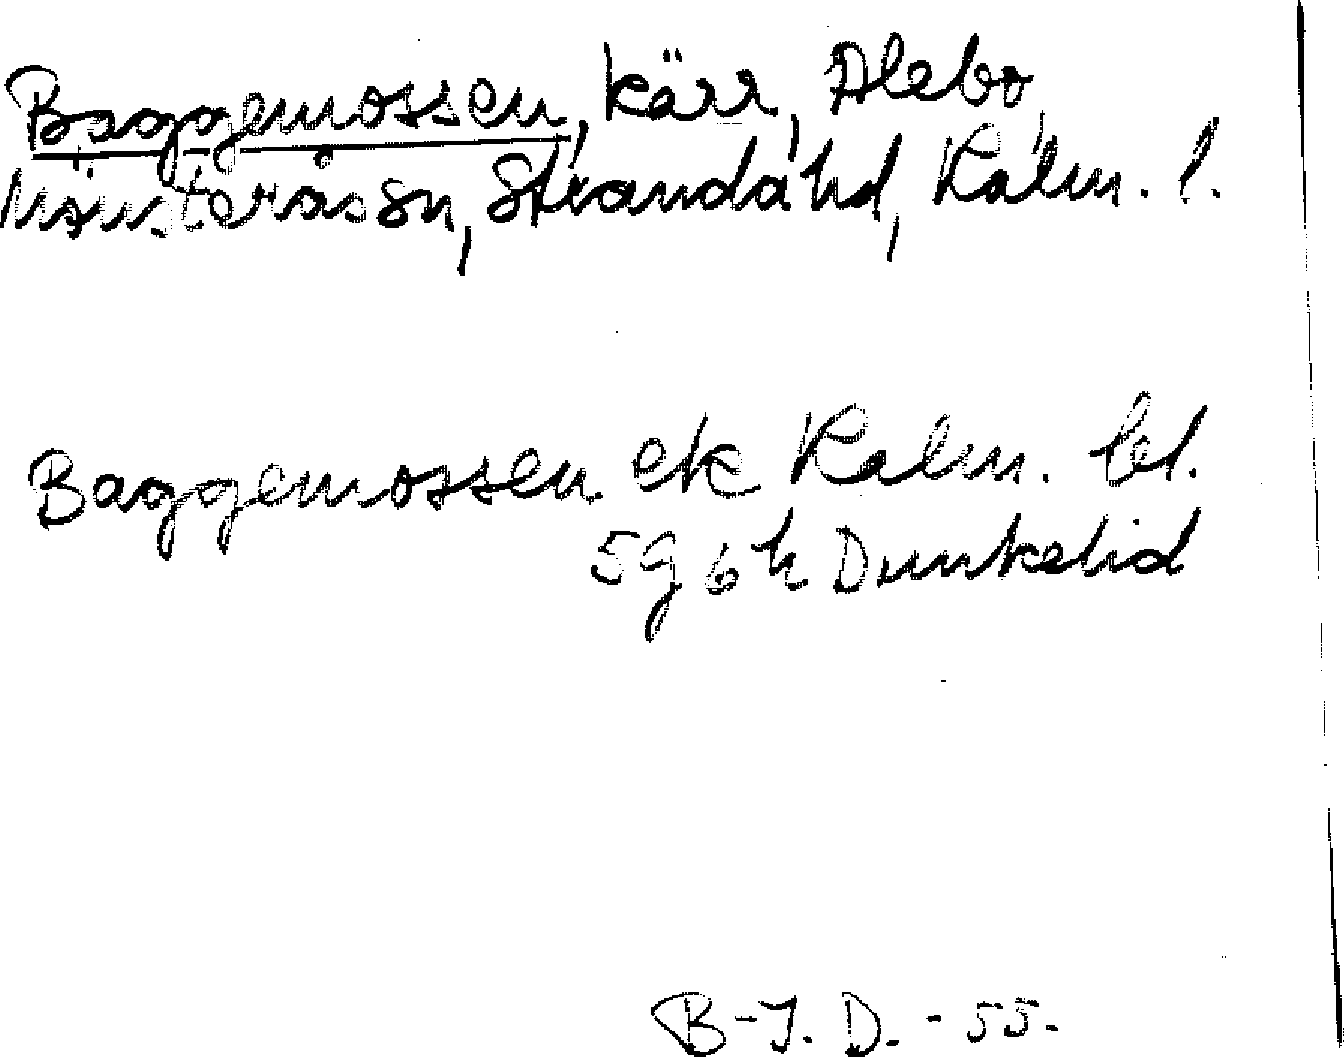 Baggemossen, kärr, Alebo,
Mönsterås sn, Stranda hd, Kalm. l.
Baggemossen ek Kalm. bl.
5g 6h Dunkelid
B-J. D. - 55.